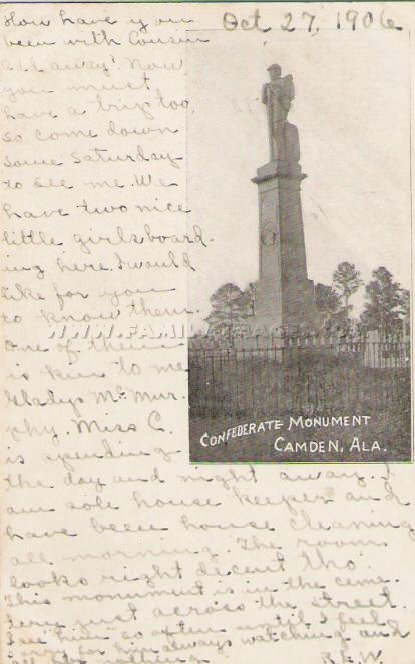 Oct 27, 1906
How have you
been with Cousin
all away? Now
you must
have a trip too,
so come down
some Saturday
to see me. We
have two nice
little girls board-
ing here. I would
like for you
to know them.
One of them
is kin to me
Gladys McMur-
phy. Miss C.
is spending
the day and night away. I
am sole house keeper and
have been house cleaning
all morning. The room
looks right decent tho.
This monument is in the ceme-
tery just across the street.
I see him so often until I feel
sorry for him always watching and
R.E.W.
WWW.FAMILY
CONFEDERATE MONUMENT
CAMDEN, ALA.